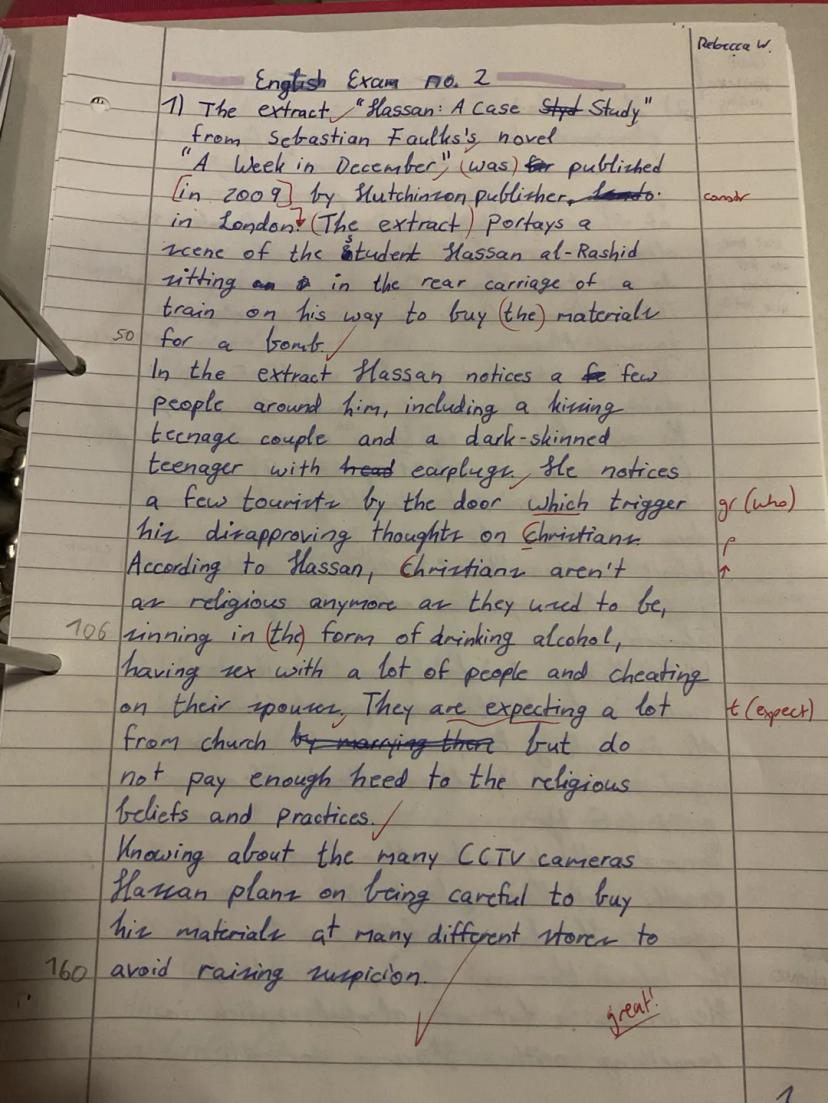 Rebecca W.
English Exam no. 2
1) The extract "Hassan: A Case Study"
from Sebastian Faulks's novel
"A Week in December," (was) published
[in 2009] by Hutchinson publisher,
constr
in London. (The extract) portays a
scene of the student Hassan al-Rashid
sitting in the rear carriage of a
train on his way to buy (the) materials
50 for a bomb.
In the extract Hassan notices a few
people around him, including a kissing
teenage couple and a dark-skinned
teenager with earplugs. He notices
a few tourists by the door which trigger gr (who)
his disapproving thoughts on Christians.
According to Hassan, Christians aren't
as religious anymore as they used to be,
106 sinning in (the) form of drinking alcohol,
having sex with a lot of people and cheating
on their spouses. They are expecting a lot t (expect)
from church but do
not pay enough heed to the religious
beliefs and practices.
Knowing about the many CCTV cameras
Hassan plans on being careful to buy
his materials at many different stores to
160 avoid raising suspicion.
great!
1